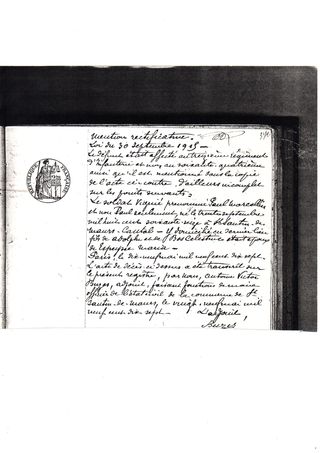 mention rectificative.
Loi du 30 septembre 1915 —
Le défunt était affecté au treizième régiment
d'Infanterie et non au soixante quatrième
ainsi qu'il est mentionné dans la copie
de l'acte ci-contre d'ailleurs incomplet
sur les points suivants.
Le soldat prénommé Paul Marcellin
et non Paul seulement, né le trente septembre
mil huit cent soixante seize à St Santin de
maurs - Cantal - Y domicilié en dernier lieu
fils de Adolphe et de Bos Célestine était époux
de
Paris, le dix-neuf mai mil neuf cent dix sept.
L'acte de décès ci-dessus a été transcrit sur
le présent registre, par nous, Antoine Victor
Buzes, adjoint, faisant fonctions de maire
officier de l'état civil de la commune de St
Santin de maurs, le vingt neuf mai mil
neuf cent dix sept. — L'adjoint,
Buzes